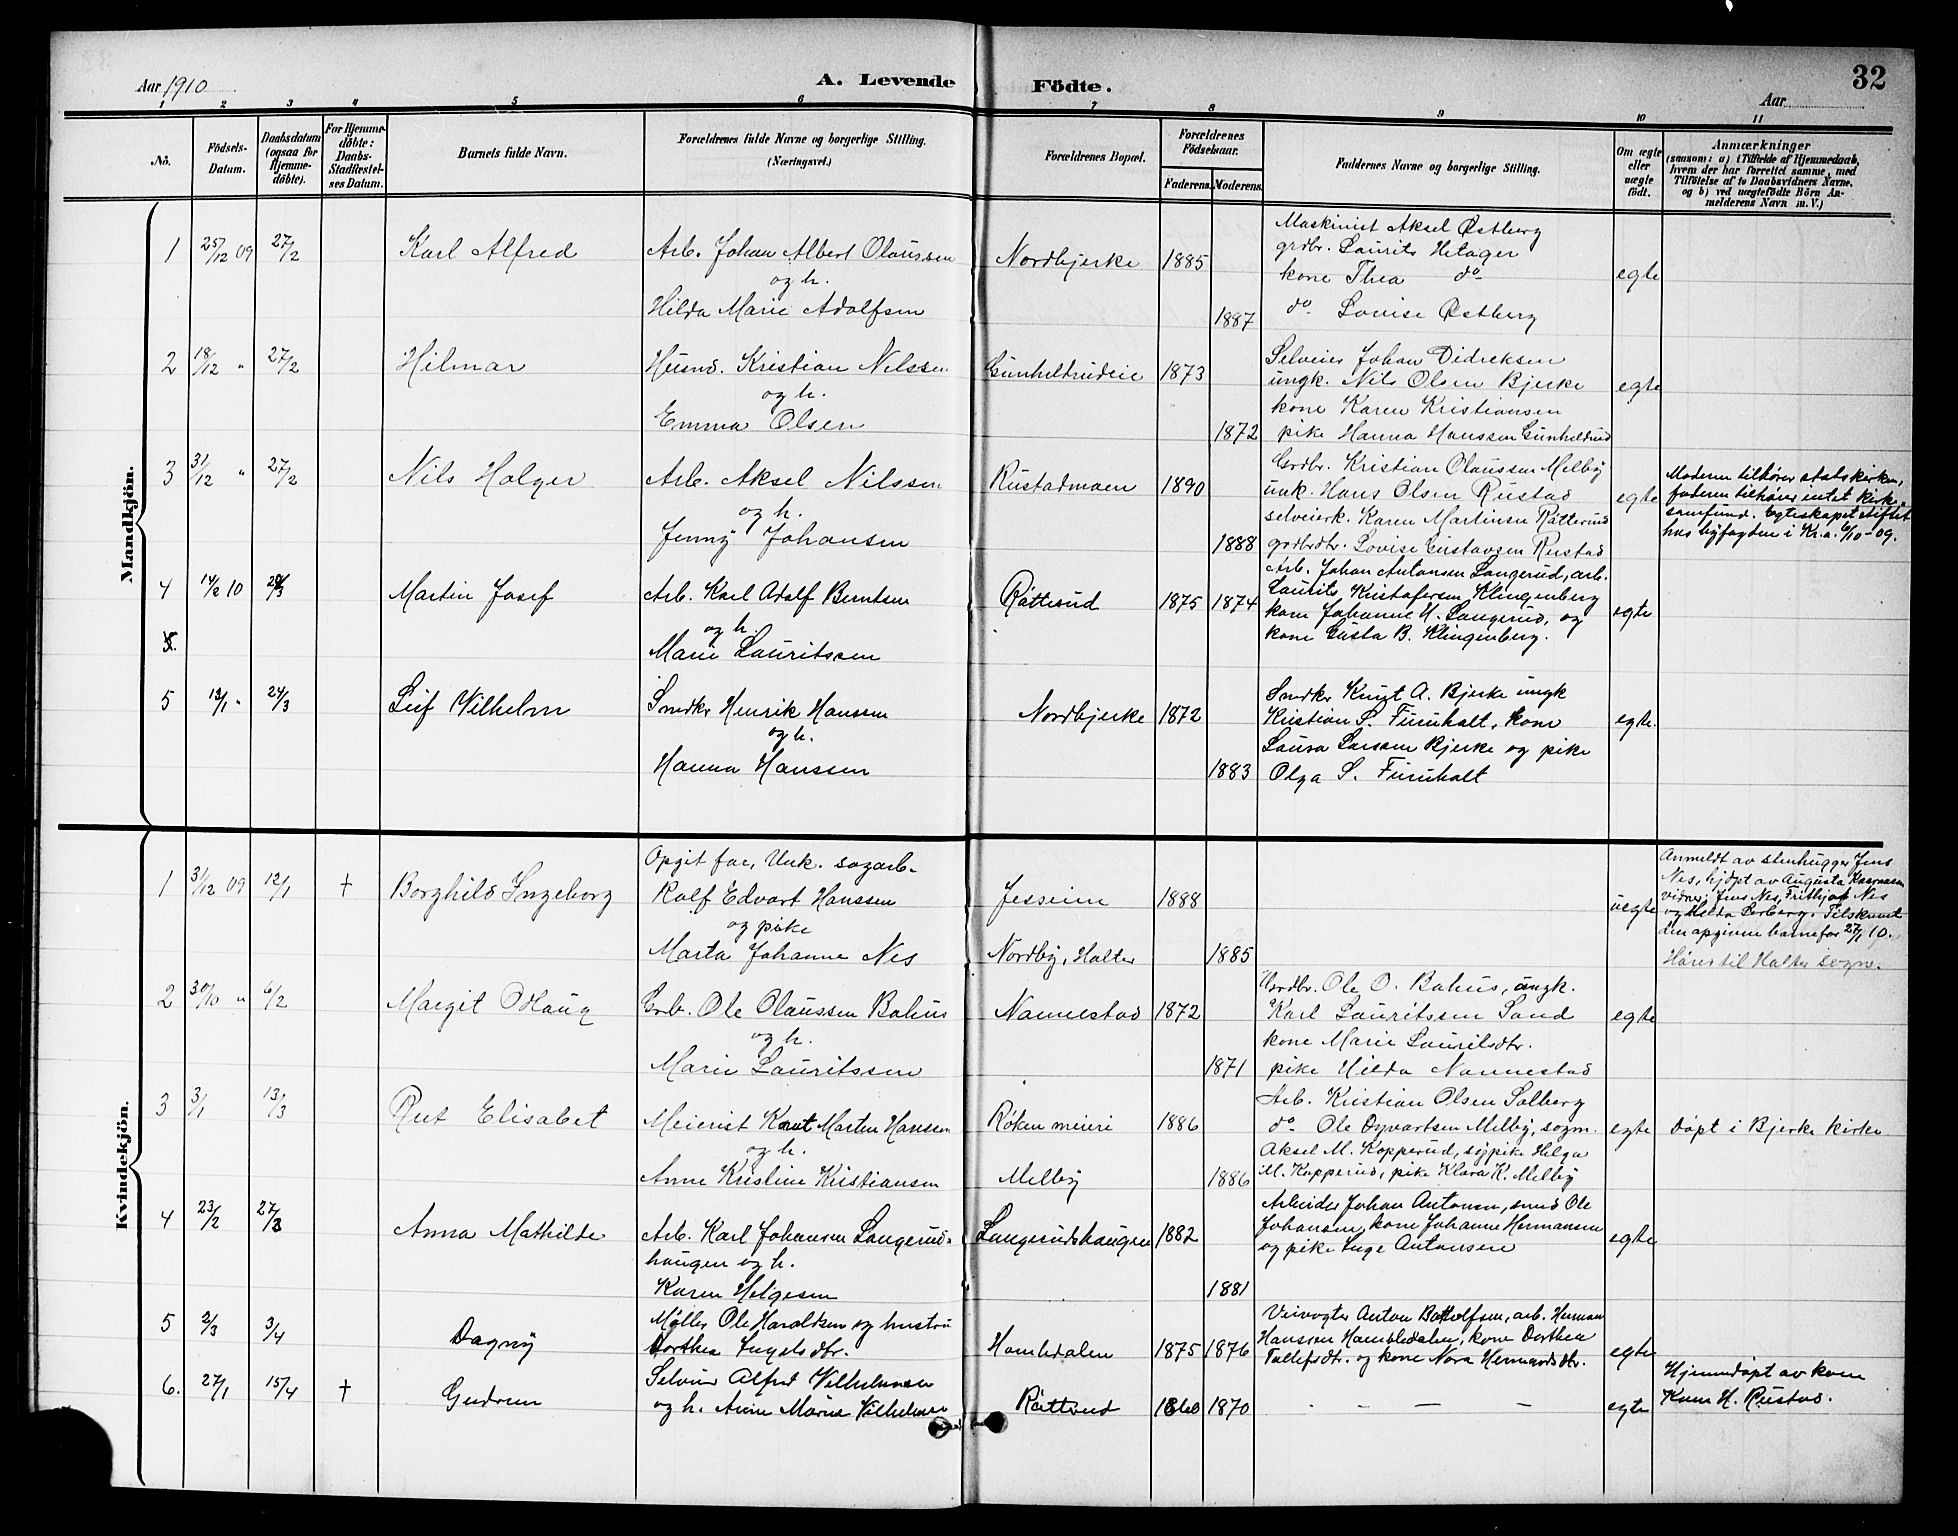 Aar 1910
A. Levende
Födte.
Aar
32
1 2 3 4 5 6 7 8 9 10 11
No.
Födsels-
Datum.
Daabsdatum
(ogsaa for
Hjemme-
döbte).
For Hjemme-
döbte:
Daabs-
Stadfæstel-
ses Datum.
Barnets fulde Navn.
Forældrenes fulde Navne og borgerlige Stilling.
(Næringsvei.)
Forældrenes Bopæl.
Forældrenes
Födselsaar.
Faderens. Moderens.
Faddernes Navne og borgerlige Stilling.
Om ægte
eller
uægte
födt.
Anmærkninger
(saasom: a) i Tilfælde af Hjemmedaab,
hvem der har forrettet samme, med
Tilföielse af to Daabsvidners Navne,
og b) ved uægtefödte Börn An-
melderens Navn m. V.)
Mandkjön.
1 25/12 09 27/2 Karl Alfred
Arb. Johan Albert Olaussen
og h.
Hilda Marie Adolfsen
Nordbjerke 1885
1887
Maskinist Aksel Østberg
grdbr. Laurits Hetager
kone Thea do
do Lovise Østberg
egte
2 18/12 " 27/2 Hilmar
Husmd. Kristian Nilssen
og h.
Emma Olsen
Gunheldrudeie 1873
1872
Selveier Johan Didreksen
ungk. Nils Olsen Bjerke
kone Karen Kristiansen
pike Hanna Hanssen Gunheldrud
egte
3 31/12 " 27/2 Nils Holger
Arb. Aksel Nilssen
og h.
Jenny Johansen
Rustadmoen 1890
1888
Grdbr. Kristian Olaussen Melby
unk. Hans Olsen Rustad
selveierk. Karen Martinsen Råtterud
grdbrdtr. Lovise Gustavsen Rustad
egte
Moderen tilhører statskirken,
faderen tilhører intet kirke-
samfund. Egteskapet stiftet
hos byfogden i Kr.a. 6/10-09.
4 14/2 10 Martin Josef
Arb. Karl Adolf Berntsen
og h.
Marie Lauritssen
Råtterud 1875 1874
Arb. Johan Antonsen Langerud, arb.
Laurits Kristofersen Klingenberg
kone Johanne M. Langerud, og
kone Gusta B. Klingenberg.
egte
5.
5 24/3 Leif Wilhelm
Snedker Henrik Hanssen
og h.
Hanna Hanssen
Nordbjerke 1872
1883
Snedker Knut A. Bjerke ungk
Kristian S. Furuholt, kone
Laura Larssen Bjerke og pike
Olga S. Furuholt
egte.
Kvindekjön.
1 31/12 09 12/1 † Borghild Ingeborg
Opgit far, Unk. sagarb.
Rolf Edvart Hanssen
og pike
Marta Johanne Nes
Jesseim 1888
Nordby, Holter 1885
uegte
Anmeldt av stenhugger Jens
Nes, hjdøpt av Augusta
vidner: Jens Nes, Frithjof Nes
og Helda Tilskrevet
den opgivne barnefar 27/1 10.
Hører til Holter sogn.
2 30/10 " 6/2 Margit Olaug
Grb. Ole Olaussen Bahus
og h.
Marie Lauritssen
Nannestad 1872
1871
Grdbr. Ole O. Bahus, ungk.
Karl Lauritssen Sand
kone Marie Lauritsdtr.
pike Hilda Nannestad
egte
3 3/1 13/3 Rut Elisabet
Meierist Knut Marten Hanssen
og h.
Anne Kristine Kristiansen
Røken meieri 1886
Melby 1886
Arb. Kristian Olsen Solberg
do Ole Syvartsen Melby, sogn.
Aksel M. Kopperud, sypike Helga
M. Kopperud, pike Klara K. Melby
egte
Døpt i Bjerke kirke
4 23/2 27/3 Anna Mathilde
Arb. Karl Johansen Langerud-
haugen og h.
Karen Helgesen
Langerudshaugen 1882
1881
Arbeider Johan Antonsen, smed Ole
Johansen, kone Johanne Hermansen
og pike Inge Antonsen
egte
5 2/3 3/4 Dagny
Møller Ole Haraldsen og hustru
Dorthea Ingelsdtr.
Hombledalen 1875 1876
Veivogter Anton Bottolfsen, arb. Herman
Hanssen Hombledalen, kone Dorthea
Tollefsdtr. og kone Nora Hermandsdtr.
egte
6. 27/1 15/4 † Gudrun
Selveier Alfred Vilhelmsen
og h. Anne Marie Vilhelmsen
Råtterud 1860 1870
- - - -
egte
Hjemmedøpt av kone
Karen H. Rustad.